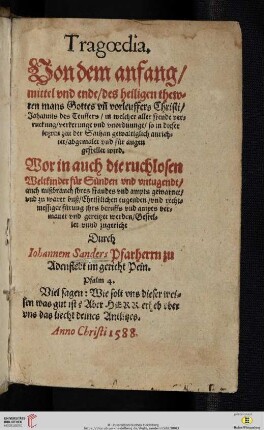 Tragœdia,
Von dem anfang/
mittel vnd ende/des heiligen thew-
ren mans Gottes vñ vorleuffers Christi/
Johannis des Teuffers/in welcher aller stende ver-
ruckung/verterung vnd vnordnung/so in dieser
letzten zeit der Sathan gewaltiglich anrich-
tet/abgemalet vnd für augen
gestellet wird.
Wor in auch die ruchlosen
Weltkinder für Sünden vnd vntugendt/
auch misbrauch ihres standes vnd ampts gewarnet/
vnd zu warer buß/Christlichen tugenden/vnd rechts-
messiger fürung ihrs beruffs vnd ampts ver-
manet vnd gereitzet werden/Gestel-
let vnnd zugericht
Durch
Iohannem Sanders Pfarherrn zu
Adenstedt im gericht Pein.
Psalm 4.
Viel sagen: Wie solt vns dieser wei-
sen was gut ist? Aber HERR erheb vber
vns das liecht deines Antlitzes.
Anno Christi 1588.